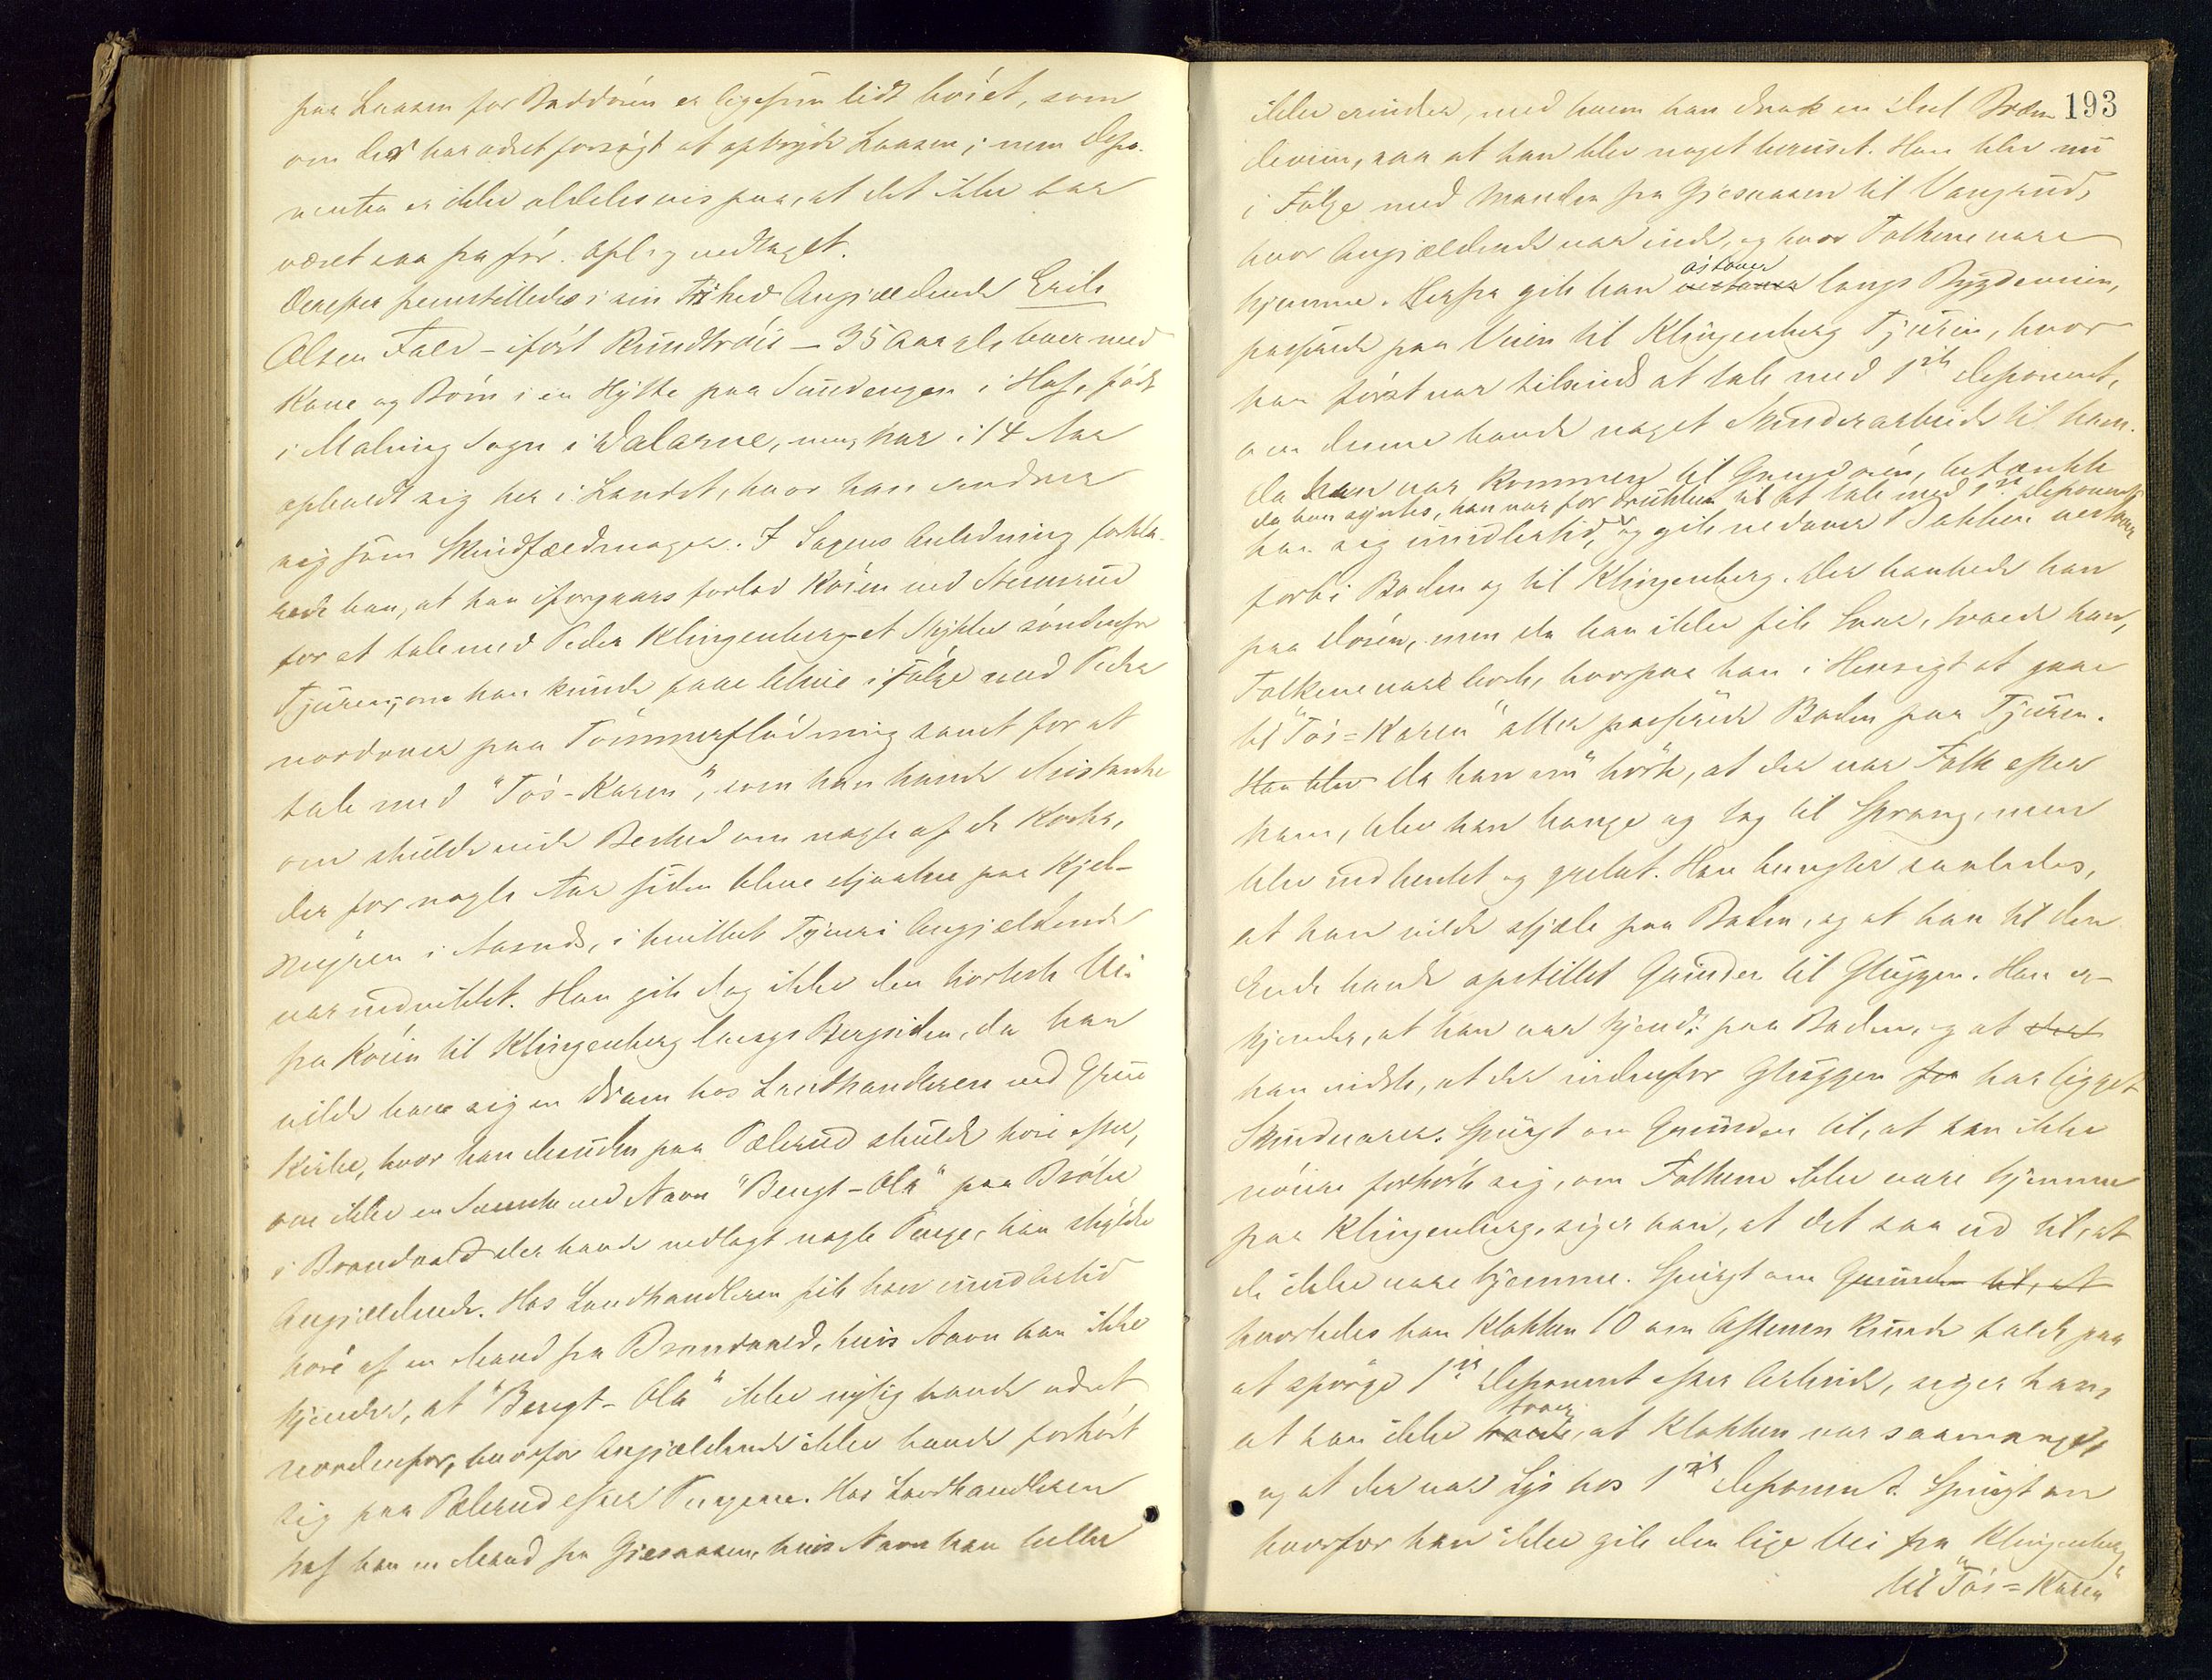 paa Laasen for Boddören er ligesom lidt böiet, som
om der har været forsögt at opbryde Laasen; men Depo-
nenten er ikke aldeles vis paa, at det ikke har
været saa fra för. Opl. og vedtaget.
Derefter fremstilledes i sin Frihed Angjældende Erik
Olsen Fald – iført Bundtröie – 35 Aar gl. boer med
Kone og Börn i en Hytte paa Sundengen i Hof, född
i Malung Sogn i Dalarne, men har i 14 Aar
opholdt sig her i Landet, hvor han ernærer
sig som Skindfeldmager. I Sagens Anledning forkla-
rede han, at han iforgaars forlod Köien ved Stemsrud
for at tale med Peder Klingenberg et Stykke söndenfor
Tjuren, om han kunde faae blive i Fölge med Peder
nordover paa Tömmerflödning samt for at
tale med "Tös-Karen", som han havde Mistanke
om skulde vide Besked om nogle af de Koster,
der for nogle Aar siden bleve stjaalne paa Kjel-
myren i Aasnes, i hvilket Tyveri Angjældende
var indviklet. Han gik dog ikke den korteste Vei
fra Köien til Klingenberg langs Bergsiden, da han
vilde have sig en Dram hos Landhandleren ved Grue
Kirke, hvor han desuden paa Pælerud skulde höre efter,
om ikke en Svenske ved Navn "Bengt-Ola" paa Bröbe
i Brandvold der havde nedlagt nogle Penge, han skyldte
Angjældende. Hos Landhandleren fik han imidlertid
höre af en Mand fra Brandvold, hvis Navn han ikke
kjender, at "Bengt-Ola" ikke nylig havde været
nordenfor, hvorfor Angjældende ikke havde forhört
sig paa Pælerud efter Pengene. Hos Landhandleren
traf han en Mand fra Gjesaasen, hvis Navn han heller
193
ikke erindrer, med hvem han drak en Deel Bræn-
deviin, saa at han blev noget beruset. Han blev nu
i Fölge med Manden fra Gjesaasen til Vangrud,
hvor Angjældende var inde, og hvor Folkene vare
östover
hjemme. Herfra gik han vestover langs Bygdeveien,
passerede paa Veien til Klingenberg Tjuren, hvor
han först var tilsinds at tale med 1ste Deponent,
om denne havde noget Skinderarbeide til ham.
Da han var kommen til Grinden, betænkte
da han syntes, han var for drukken til at tale med 1ste Deponent
han sig imidlertid, og gik nedover Bakken vestover
forbi Boden og til Klingenberg. Der bankede han
paa Dören, men da han ikke fik Svar, troede han,
Folkene vare borte, hvorpaa han i Hensigt at gaae
til "Tös-Karen" atter passerede Boden paa Tjuren.
Han blev Da han nu hörte, at der var Folk efter
ham, blev han bange og tog til Sprang, men
blev indhentet og grebet. Han benegter saaledes,
at han vilde stjæle paa Boden, og at han til den
Ende havde opstillet Grinden til Gluggen. Han er-
kjender, at han var kjendt paa Boden, og at det
han vidste, at der indenfor Gluggen for har ligget
Skindvarer. Spurgt om Grunden til, at han ikke
nöiere forhörte sig, om Folkene ikke vare hjemme
paa Klingenberg, siger han, at det saa ud til, at
de ikke vare hjemme. Spurgt om Grunden til, at
hvorledes han Klokken 10 om Aftenen kunde falde paa
at spörge 1ste Deponent efter Arbeide, siger han,
troer
at han ikke troede, at Klokken var saa mange,
og at der var Lys hos 1ste Deponent. Spurgt om
hvorfor han ikke gik den lige Vei fra Klingenberg
til "Tös-Karen"